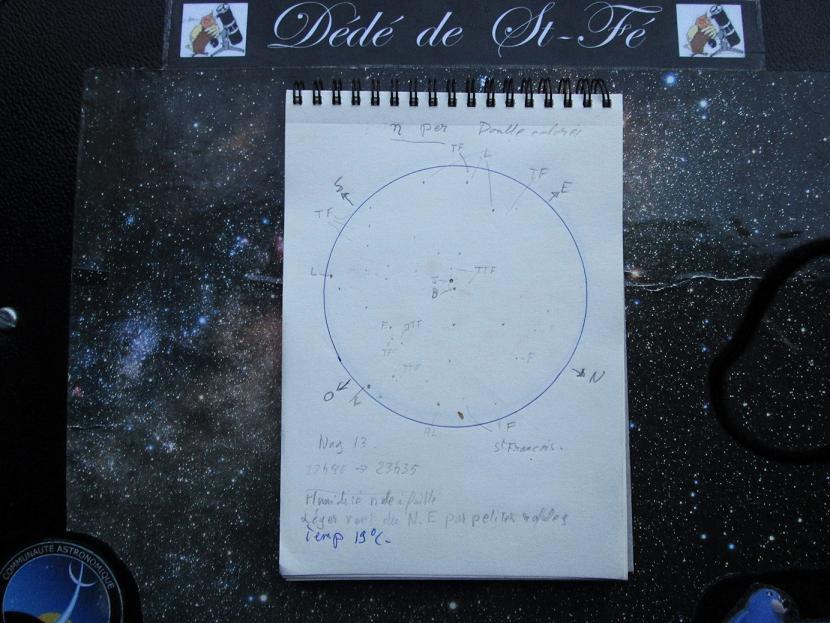 Dédé de St-Fé
η per Double colorée
TF L
TF
S
E
TF
L
J TTF
B
F TTF
TF
TTF
F
N
O
L
AL
F
Nag 13
St François.
22h40 → 23h35
Humidité nde à faible
Léger vent du N.E par petites rafales
Temp 19°C.
COMMUNAUTÉ ASTRONOMIQUE